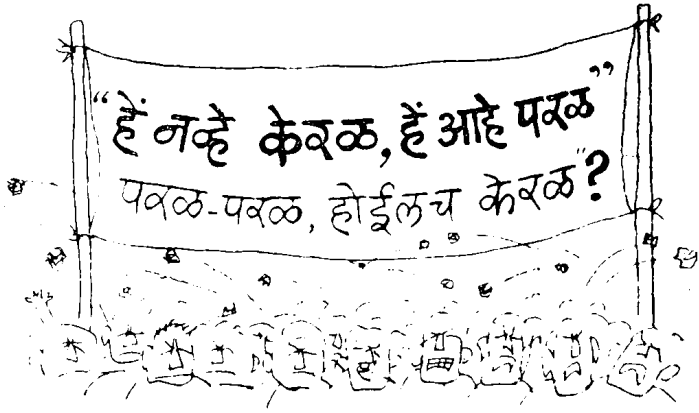 “हें नव्हे केरळ, हें आहे परळ”
परळ-परळ, होईलच केरळ"?